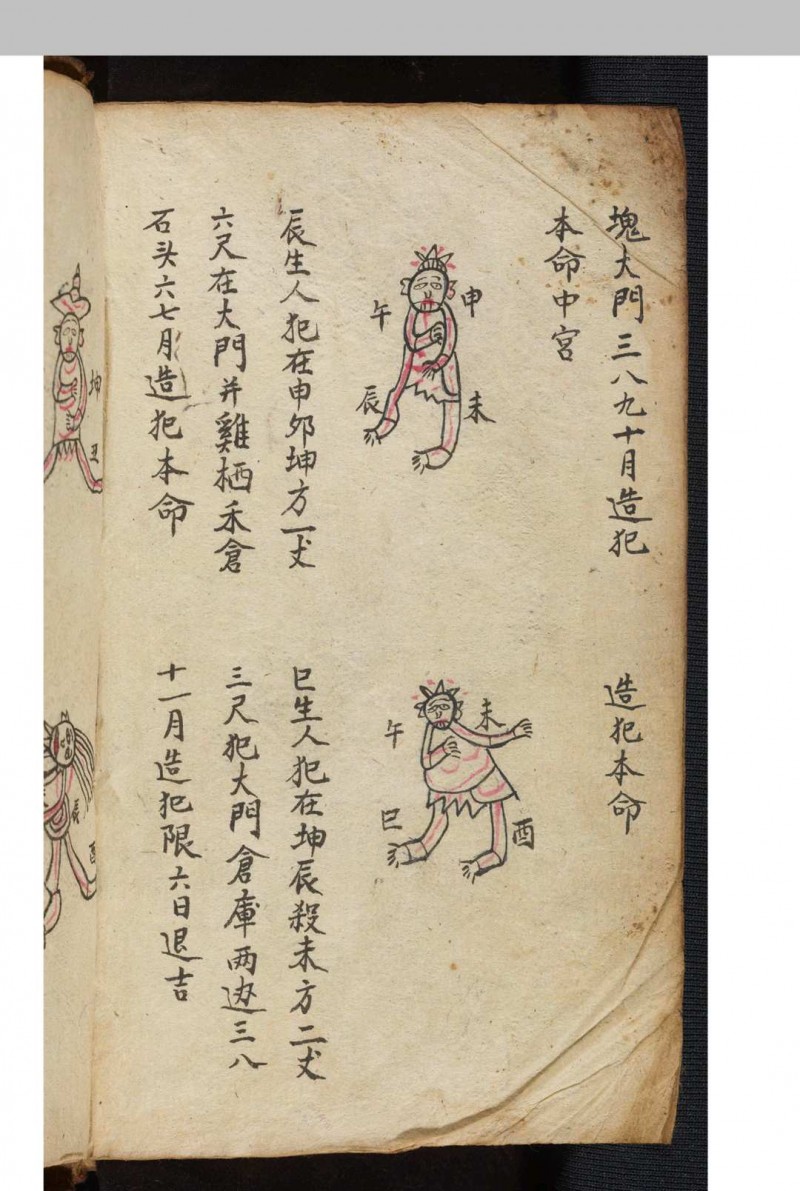 塊大門三八九十月造犯
本命中宮
申
午
辰
未
辰生人犯在申卯坤方一丈
六尺在大門并雞栖禾倉
石头六七月造犯本命
造犯本命
未
午
巳
酉
巳生人犯在坤辰殺未方二丈
三尺犯大門倉庫两边三八
十一月造犯限六日退吉
坤
丑
辰
酉